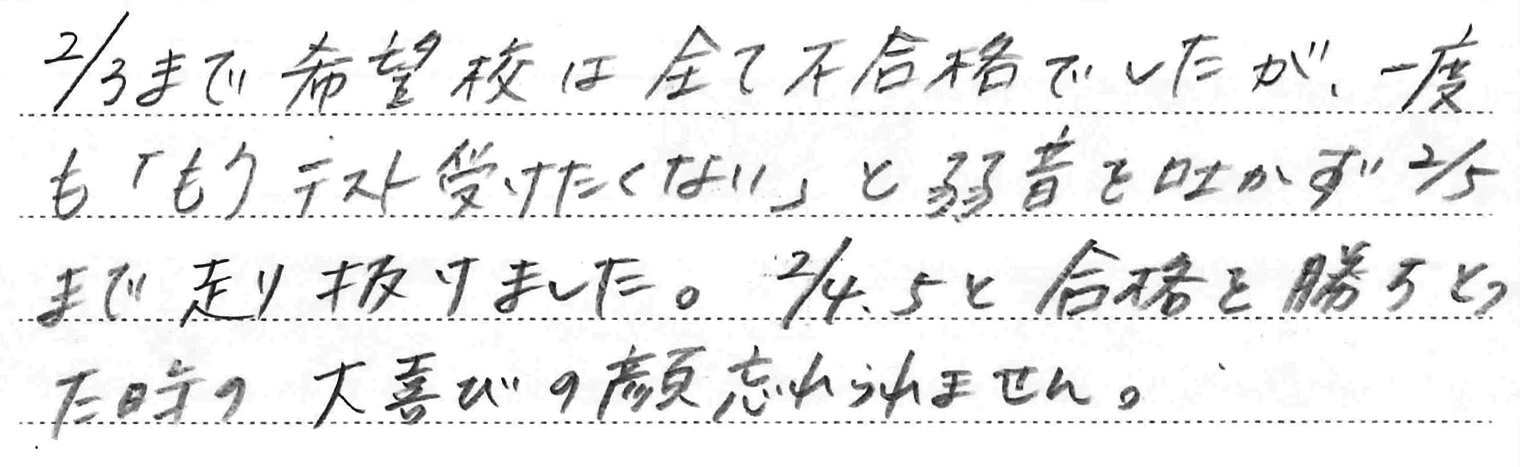 2/3まで希望校は全て不合格でしたが、一度
も「もうテスト受けたくない」と弱音を吐かず2/5
まで走り抜けました。2/4.5と合格を勝ちとっ
た時の大喜びの顔忘れられません。